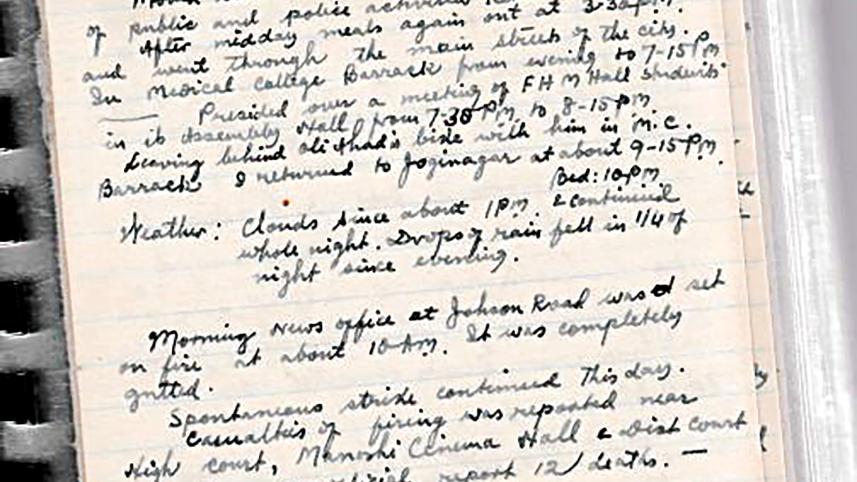 of public and police activities
After midday meals again out at 3-30 P.M.
and went through the main streets of the city.
In Medical College Barrack from evening to 7-15 PM
Presided over a meeting of F H M Hall students
in its Assembly Hall from 7-30 PM to 8-15 PM.
Leaving behind Ali Ahad's bike with him in M.C.
Barrack I returned to Joginagar at about 9-15 PM.
Bed: 10 PM
Weather: Clouds since about 1 PM & continued
whole night. Drops of rain fell in 1/4 of
night since evening.
Morning News office at Johson Road was set
on fire at about 10 Am. It was completely
gutted.
Spontaneous strike continued this day.
Casualties of firing was reported near
High court, Manoshi Cinema Hall & Dist Court
report 12 deaths. —